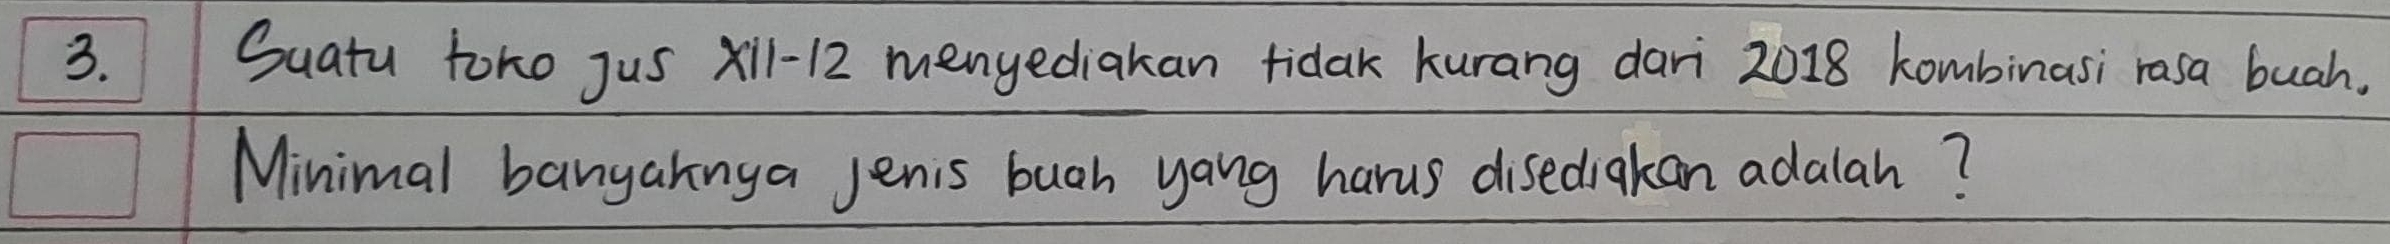 3. Suatu toko jus XII-12 menyediakan tidak kurang dari 2018 kombinasi rasa buah.
Minimal banyaknya jenis buah yang harus disediakan adalah ?